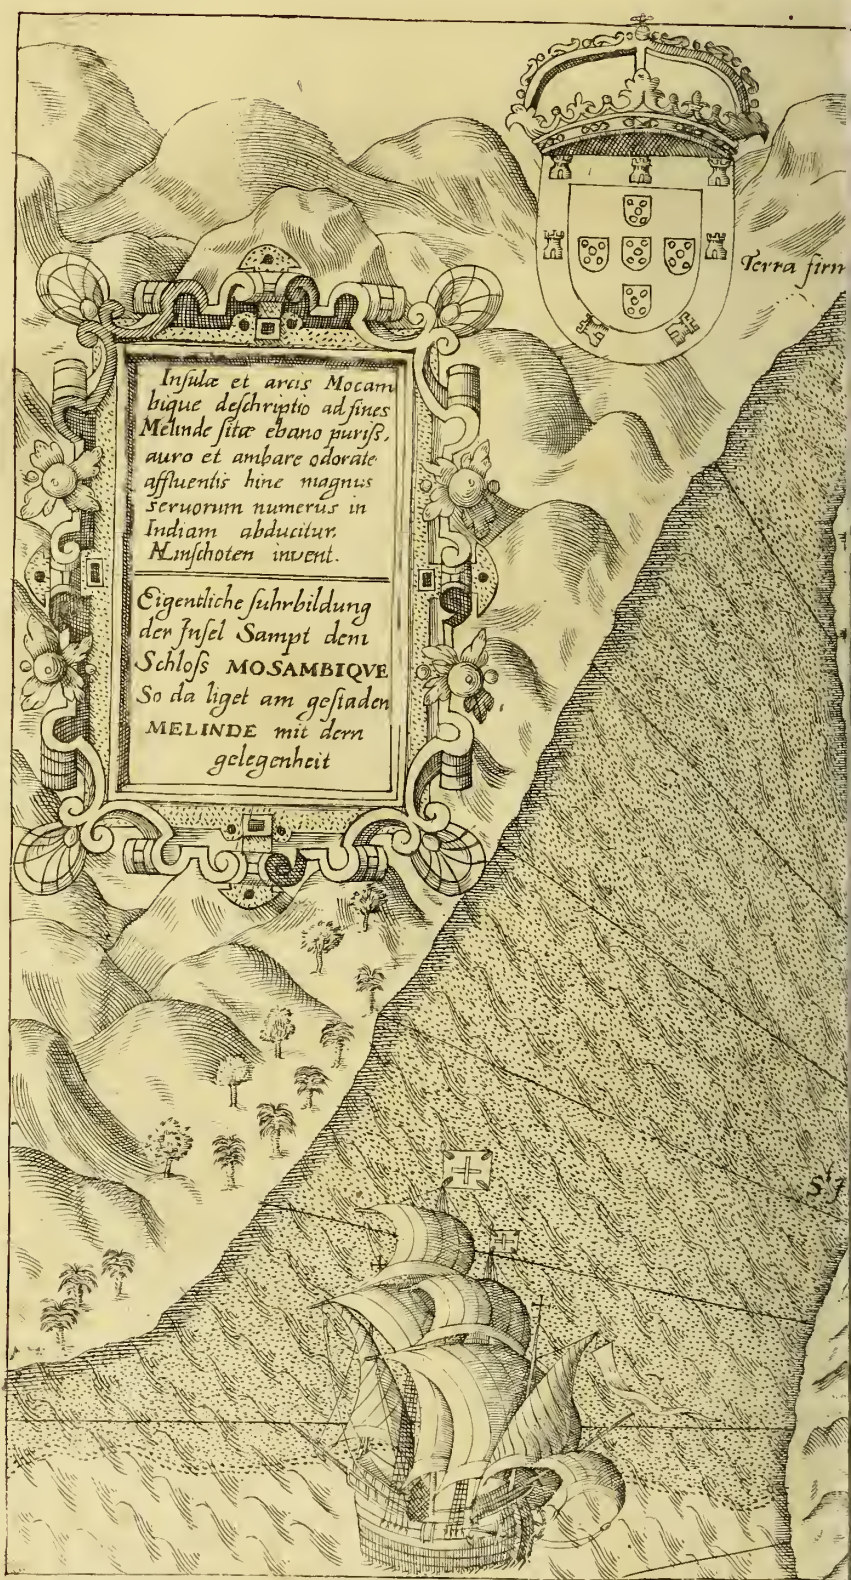 Terra firm
Insulæ et arcis Mocam
bique deschriptio ad fines
Melinde sitæ ebano puriss,
auro et ambare odorate
affluentis hinc magnus
seruorum numerus in
Indiam abducitur.
Linschoten invent.
Eigentliche fuhrbildung
der Insel Sampt dem
Schloss MOSAMBIQVE
So da liget am gestaden
MELINDE mit dern
gelegenheit
St